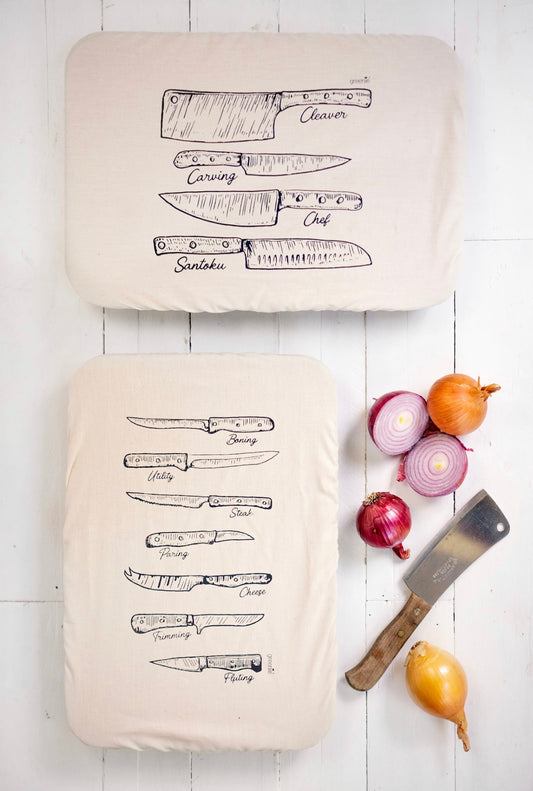 greenie
Cleaver
Carving
Chef
Santoku
Boning
Utility
Steak
Paring
Cheese
Trimming
greenie
Fluting